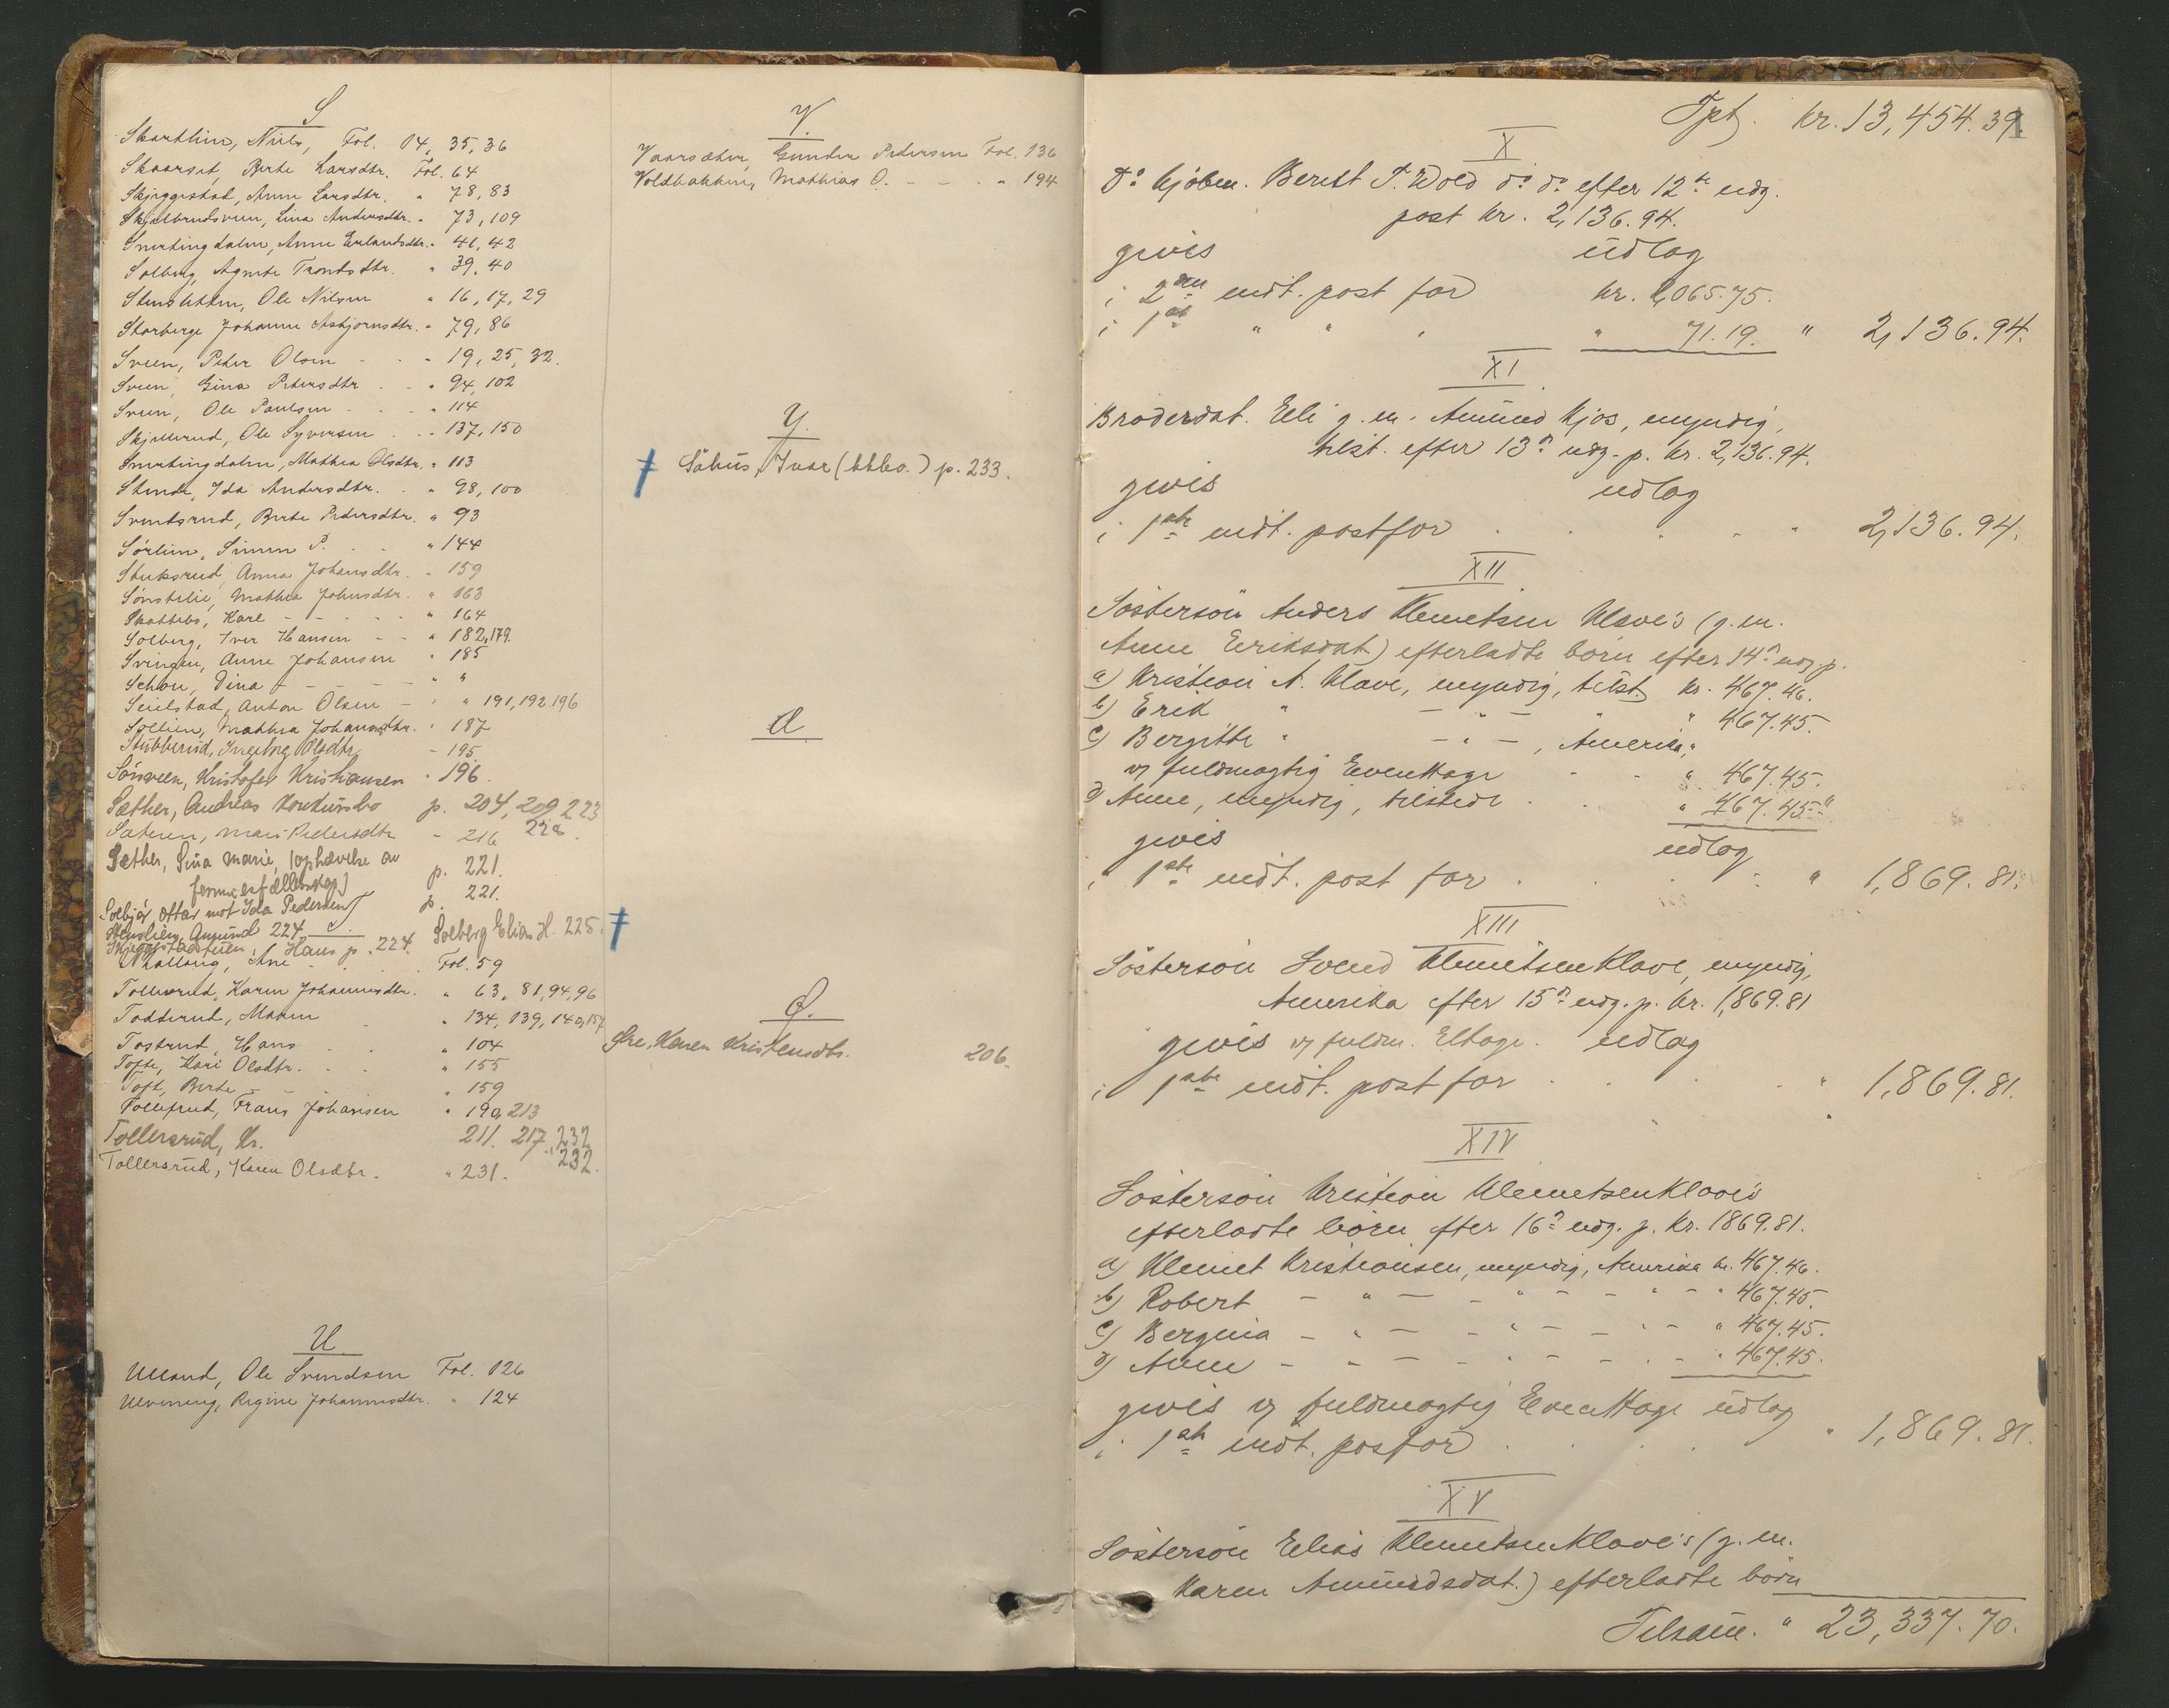 S
Skartlien, Niels, Fol. 14, 35, 36
Skaarset, Berte Larsdtr. Fol. 64
Skjeggestad, Anne Larsdtr. " 78, 83
Skjelbrudsveen, Lina Andersdtr. " 73, 109
Smertingdalen, Anne Erlandsdtr. " 41, 42
Solberg, Agnete Trondsdtr. " 39, 40
Stensletten, Ole Nilsen " 16, 17, 29
Storberge Johanne Asbjørnsdtr. " 79, 86
Sveen, Peter Olsen - - " 19, 25, 32.
Sveen, Gina Petersdtr - - " 94, 102
Sveen, Ole Paulsen - - " 114
Skjellerud, Ole Syversen - - " 137, 150
Smertingdalen, Mathea Olsdtr. " 113
Stende, Ida Andersdtr. - " 98, 100
Sventsrud, Berte Pedersdtr. " 93
Sørlien, Simen P. - - " 144
Stuksrud, Anna Johansdtr. " 159
Sønstelie, Mathea Johnsdtr. " 163
Skattebo, Karl - - - - " 164
Solberg, Iver Hansen - - " 182, 179.
Svingen, Anne Johansen " 185
Schou, Dina - - - - " "
Seielstad, Anton Olsen - " " 191, 192 196
Sollien, Mathea Johannsdtr. " 187
Stubberud, Ingeborg Olsdtr. - 195
Sönsveen, Kristofer Kristiansen " 196.
Sæther, Andreas konkursbo p. 204, 209, 223
Sæteren, Mari Pedersdtr - 216 228.
Sæther, Sina Marie, (ophævelse av p. 221.
formuesfællesskap)
Solbjør, Ottar mot Ida Pedersen p. 221.
Stenslien, Amund 224
Skjeggestadstuen, Hans p. 224. Solberg Elias H. 225.
T.
Thallaug, Ane - - Fol. 59
Tollersrud, Karen Johannesdtr. " 63, 81, 94, 96
Todderud, Maren - " 134, 139, 140, 157
Tostrud, Hans - - " 104
Tofte, Kari Olsdtr. - - " 155
Toft, Berte - - " 159
Tollefrud, Frans Johansen " 190, 213
Tollersrud, Kr. 211. 217, 232
Tollersrud, Karen Olsdtr. " 231. 232.
U.
Ulland, Ole Svendsen Fol. 126
Ulvening, Regine Johannesdtr. " 124
V.
Vaarsæter, Gunder Pedersen Fol. 136
Voldbakken, Mathias O. - - - " 194
Y.
Säbus, Ivar (kkbo.) p. 233.
Æ
Ø.
Øre, Karen Kristensdtr. 206.
Tpt. kr. 13,454.39.
X
Do kjøbm. Berett T. Wold do do efter 12te udg.
post kr. 2,136.94.
gives udlag
i 2den indt. post for kr. 2,065.75.
i 1ste " " " " 71.19. " 2,136.94.
XI
Broderdat. Eli g. m. Amund Kjos, myndig,
tilst. efter 13de udg. p. kr. 2,136.94.
gives udlag
i 1ste indt. post for . . . . " 2,136.94.
XII
Søstersøn Anders Klemetsen Klave's (g. m.
Anne Eriksdat) efterladte børn efter 14de udg p.
a) Kristian A. Klave, myndig, tilst. kr. 467.46.
b) Erik " - " - " " 467.45.
c) Bergitte " - " - , Amerika, "
v. fuldmægtig Even Hage - - " 467.45.
d) Anne, myndig, tilstede . . " 467.45 "
gives udlag
i 1ste indt. post for . . . . " 1,869.81.
XIII
Søstersøn Svend Klemetsen Klave, myndig,
Amerika efter 15de udg. p. kr. 1,869.81
gives v. fuldm. E Hage. udlag
i 1ste indt. post for . . . . " 1,869.81.
XIV
Søstersøn Kristian Klemetsen Klave's
efterladte børn efter 16de udg. p. kr. 1869.81.
a) Klemet Kristiansen, myndig, Amerika kr. 467.46.
b) Robert - " - - " - - " - " 467.45.
c) Bergina - " - - " - - " - " 467.45.
d) Anne - " - - " - - " - " 467.45.
gives v. fuldmægtig Even Hage udlag
i 1ste indt. post for . . . " 1,869.81.
XV
Søstersøn Elias Klemetsen Klave's (g. m.
Karen Amundsdat.) efterladte børn
Tilsam. " 23,337.70.